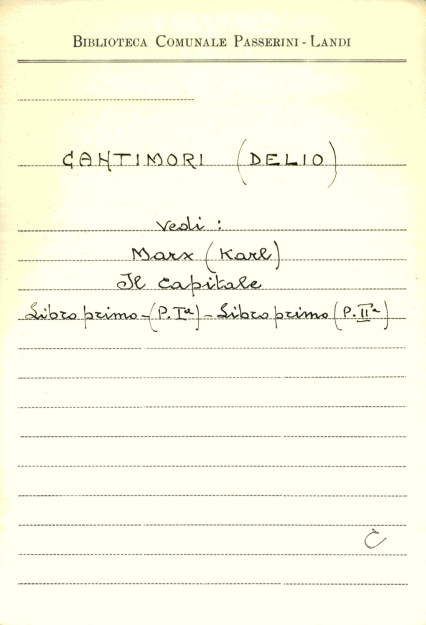 BIBLIOTECA COMUNALE PASSERINI - LANDI
CANTIMORI (DELIO)
Vedi :
Marx (Karl)
Il Capitale
Libro primo - (P. Iª) - Libro primo (P. IIª)
C